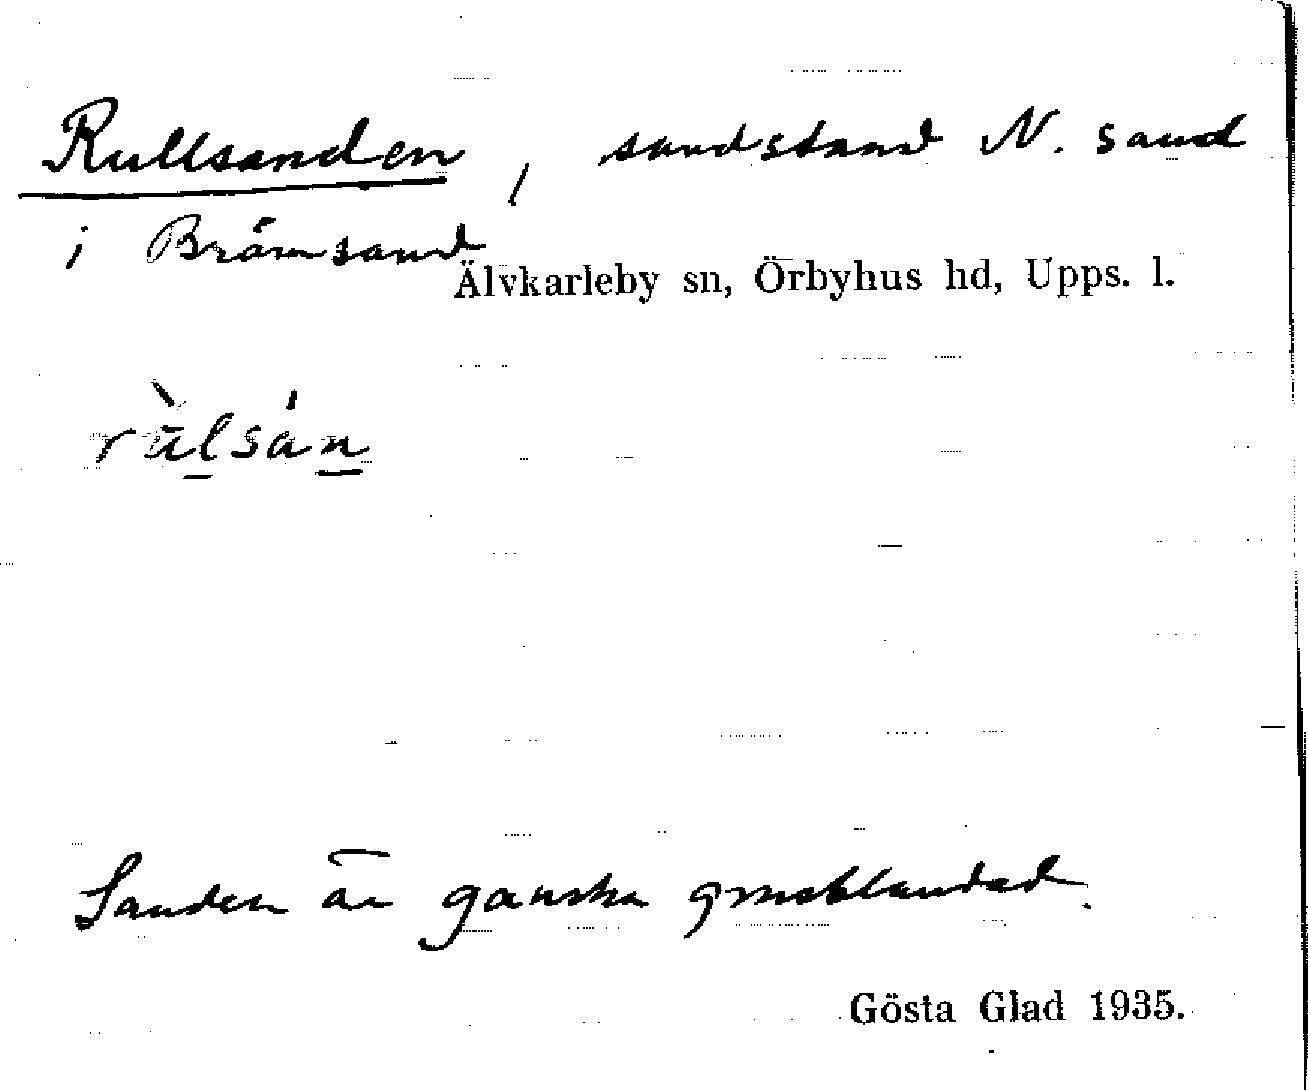 Rullsanden, sandstrand N. sand
i Brämsand
Älvkarleby sn, Örbyhus hd, Upps. l.
rùlsán
Sanden är ganska grusblandad.
Gösta Glad 1935.